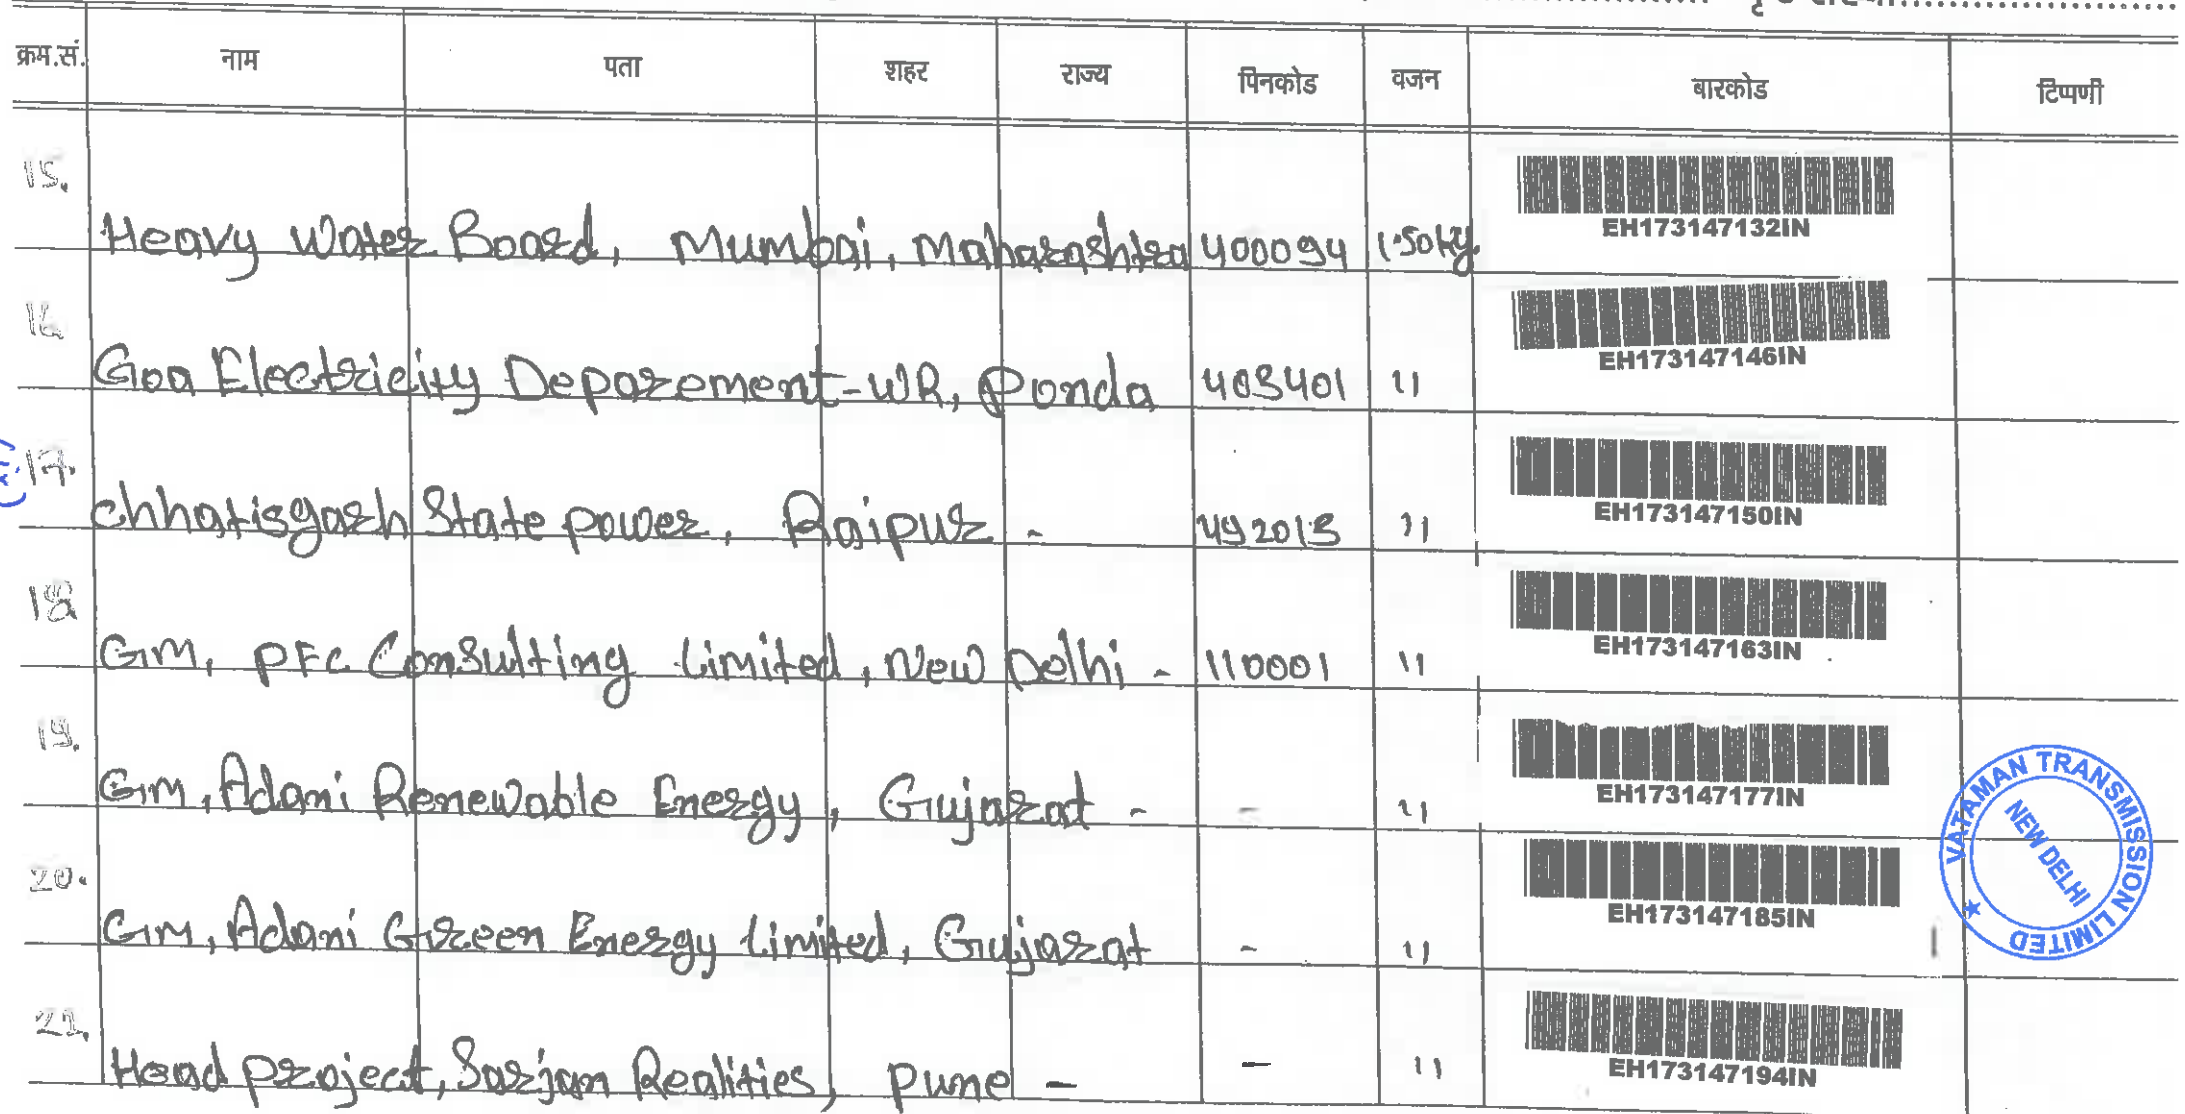 क्रम.सं. नाम पता शहर राज्य पिनकोड वजन बारकोड टिप्पणी
15. Heavy Water Board, Mumbai, Maharashtra 400094 1.50kg. EH173147132IN
16 Goa Electricity Deparement-WR, Ponda 403401 11 EH173147146IN
17. Chhatisgarh State power, Raipur - 492013 11 EH173147150IN
18 GM, PFC Consulting Limited, New Delhi - 110001 11 EH173147163IN
19. GM, Adani Renewable Energy, Gujarat - - 11 EH173147177IN
20. GM, Adani Green Energy Limited, Gujarat - 11 EH173147185IN
21. Head project, Sarjan Realities, Pune - - 11 EH173147194IN
VATAMAN TRANSMISSION LIMITED
NEW DELHI